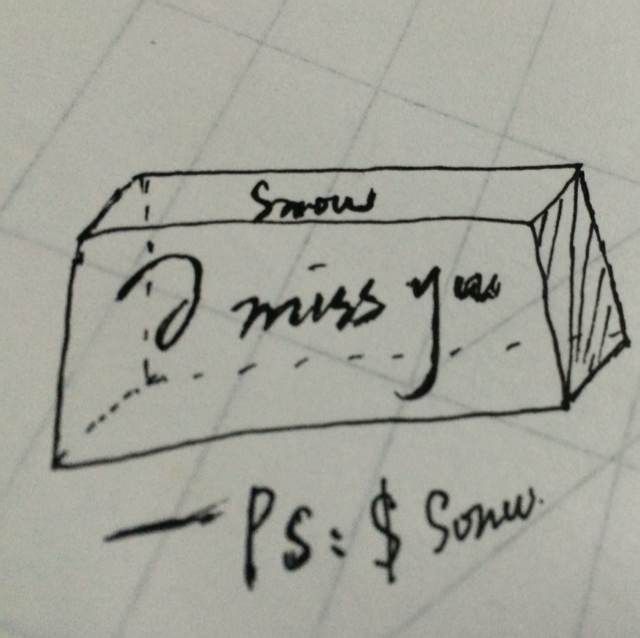 Snow
I miss you
— PS: $ Sonw.